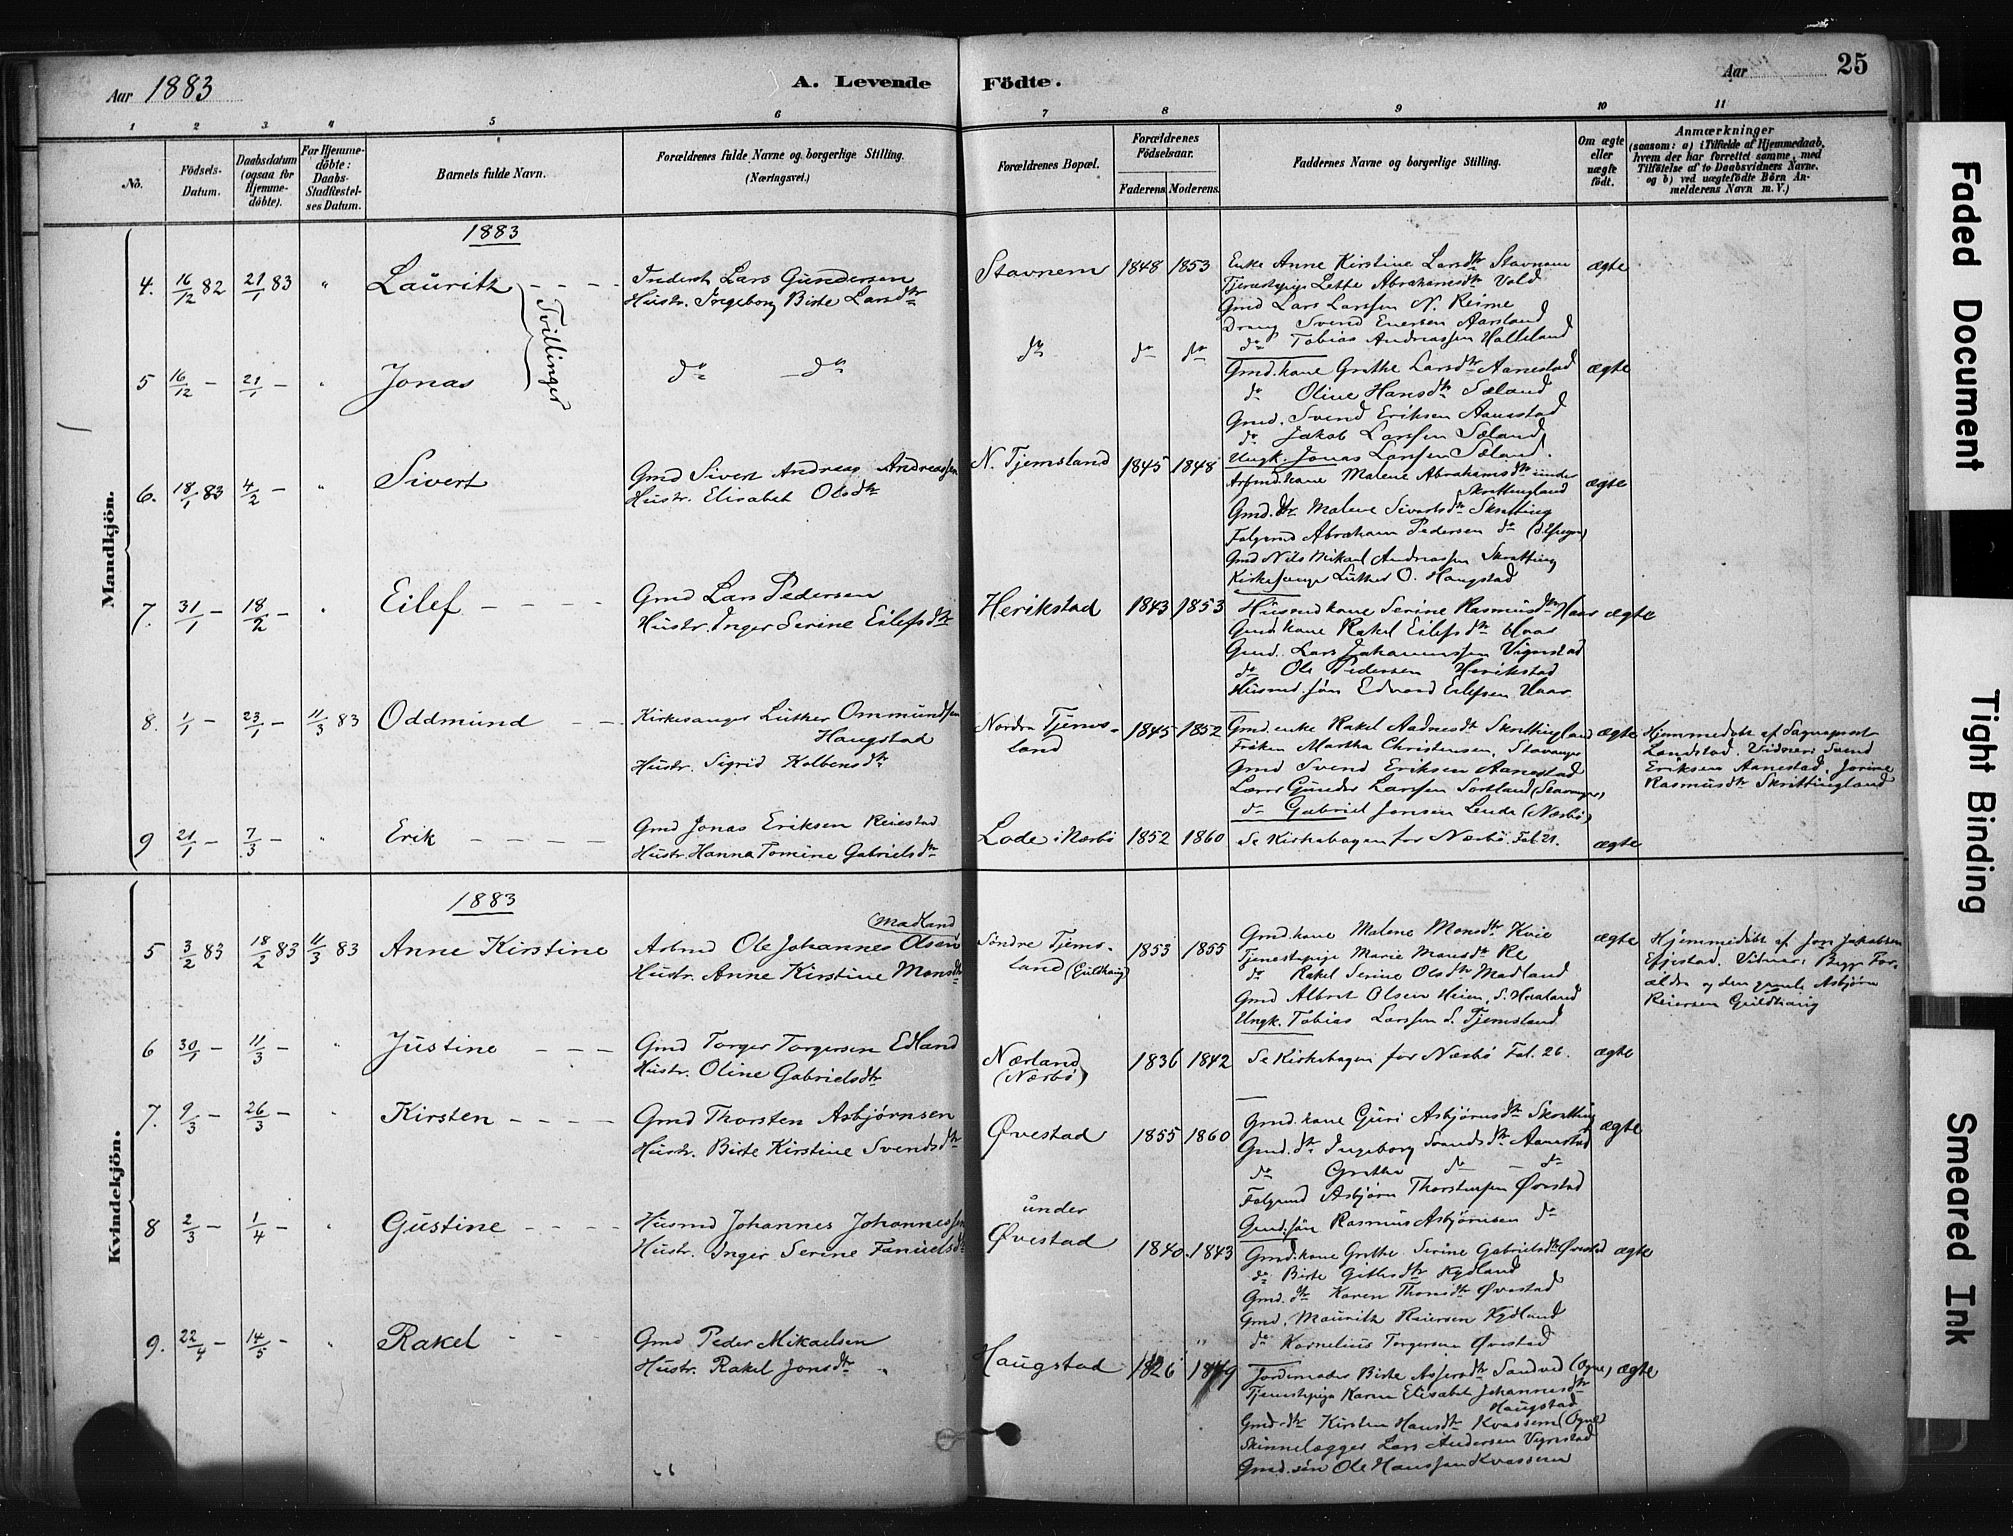 Aar 1883
A. Levende Födte.
Aar
25
1 2 3 4 5 6 7 8 9 10 11
No.
Födsels-Datum.
Daabsdatum (ogsaa for Hjemme-döbte).
For Hjemme-döbte: Daabs-Stadfæstel-ses Datum.
Barnets fulde Navn.
Forældrenes fulde Navne og borgerlige Stilling.
(Næringsvei.)
Forældrenes Bopæl.
Forældrenes Födselsaar.
Faderens. Moderens.
Faddernes Navne og borgerlige Stilling.
Om ægte eller uægte födt.
Anmærkninger
(saasom: a) i Tilfælde af Hjemmedaab,
hvem der har forrettet samme, med
Tilföielse af to Daabsvidners Navne.
og b) ved uægtefödte Börn An-
melderens Navn m. V.)
Mandkjön.
1883
4. 16/12 82 21/1 83 " Lauritz - - - -
Tvillinger
Inderst Lars Gundersen
Hustr. Ingeborg Birte Larsdtr
Stavnem 1848 1853
Enke Anne Kirstine Larsdtr Stavnem
Tjenestepige Lette Abrahamsdtr Vold
Gmd Lars Larssen N. Reime
Dreng Svend Enersen Aarsland
do Tobias Andreassen Holteland
ægte
5 16/12 - 21/1 - " Jonas
do - do
do do do
Gmd.kone Grethe Larsdtr Aanestad
do Oline Hansdtr Sæland
Gmd. Svend Eriksen Aanestad
do Jakob Larssen Sæland
Ungk. Jonas Larssen Sæland.
ægte
6. 18/1 83 4/2 - " Sivert
Gmd Sivert Andreas Andreassen
Hustr. Elisabet Olsdtr
N. Tjemsland 1845 1848
Arbmd.kone Malene Abrahamsdtr under
Skrettingland
Gmd.dtr Malene Sivertsdtr Skretting
Folgemd Abraham Pedersen do
Gmd Nils Mikael Andreassen Skretting
Kirkesanger Luther O. Haugstad
ægte
7. 31/1 - 18/2 - " Eilef - - - -
Gmd Lars Pedersen
Hustr. Inger Serine Eilefsdtr
Herikstad 1843 1853
Husmd.kone Serine Rasmusdtr Haar
Gmd.kone Rakel Eilefsdtr Haar
Gmd. Lars Johannessen Vigrestad
do Ole Pedersen Herikstad
Husmd.søn Edvard Eilefsen Haar
ægte
8. 1/1 - 23/1 - 11/3 83 Oddmund - -
Kirkesanger Luther Ommundsen
Haugstad
Hustr. Sigrid Kolbensdtr
Nordre Tjems-
land
1845 1852
Gmd.enke Rakel Aadnesdtr Skrettingland
Frøken Martha Christensen, Stavanger
Gmd Svend Eriksen Aanestad
Lærer Gunder Larssen Sortland (Stavanger)
do Gabriel Jonsen Lende (Nærbø)
ægte
Hjemmedøbt af Sognepræst
Landstad. Vidner: Svend
Eriksen Aanestad, Jorine
Rasmusdtr Skrettingland
9 21/1 - 7/3 - " Erik - - - -
Gmd Jonas Eriksen Reiestad
Hustr. Hanna Tomine Gabrielsdtr
Lode i Nærbø 1852 1860
Se Kirkebogen for Nærbø Fol. 21.
ægte
Kvindekjön.
1883
5 3/2 83 18/2 83 11/3 83 Anne Kirstine
(Madland)
Arbmd Ole Johannes Olsen
Hustr. Anne Kirstine Monsdtr
Søndre Tjems-
land (Guldhaug)
1853 1855
Gmd.kone Malene Monsdtr Kvie
Tjenestepige Marie Monsdtr Re
do Rakel Serine Olsdtr Madland
Gmd Albret Olsen Heien, S. Haaland
Ungk. Tobias Larssen S. Tjemsland
ægte
Hjemmedøbt af Jon Jakobsen
Vidner: Begge For-
ældre og den gamle Asbjørn
Reiersen Guldhaug
6 30/1 - 11/3 - " Justine - - -
Gmd Torger Torgersen Edland
Hustr. Oline Gabrielsdtr
Nærland
(Nærbø)
1836 1842
Se Kirkebogen for Nærbø Fol. 26.
ægte
7. 9/3 - 26/3 - " Kirsten - - - -
Gmd Thorsten Asbjørnsen
Hustr. Birte Kirstine Svendsdtr
Øvestad 1855 1860
Gmd.kone Guri Asbjørnsdtr Skretting
Gmd.dtr Ingeborg Svendsdtr Aanestad
do Grethe do - do
Folgemd Asbjørn Thorstensen Øvestad
Gmd.søn Rasmus Asbjørnsen do
ægte
8 2/3 - 1/4 - " Gustine - - - -
Husmd Johannes Johannessen
Hustr. Inger Serine Fanuelsdtr
under
Øvestad
1840 1843
Gmd.kone Grethe Serine Gabrielsdtr Øvestad
do Birte Gittesdtr Kydland
Gmd.dtr Karen Thonsdtr Øvestad
Gmd. Mauritz Reiersen Kydland
do Kornelius Torgersen Øvestad
ægte
9. 22/4 - 14/5 - " Rakel - -
Gmd Peder Mikaelsen
Hustr. Rakel Jonsdtr
Haugstad 1826 1849
Jordemoder Birte Sandved (Ogne)
Tjenestepige Karen Elisabet Johannesdtr
Haugstad
Gmd.dtr Kirsten Hansdtr Kvassem (Ogne)
Skinnelægger Lars Andersen Vigrestad
Gmd.søn Ole Hanssen Kvassem
ægte
Faded Document
Tight Binding
Smeared Ink